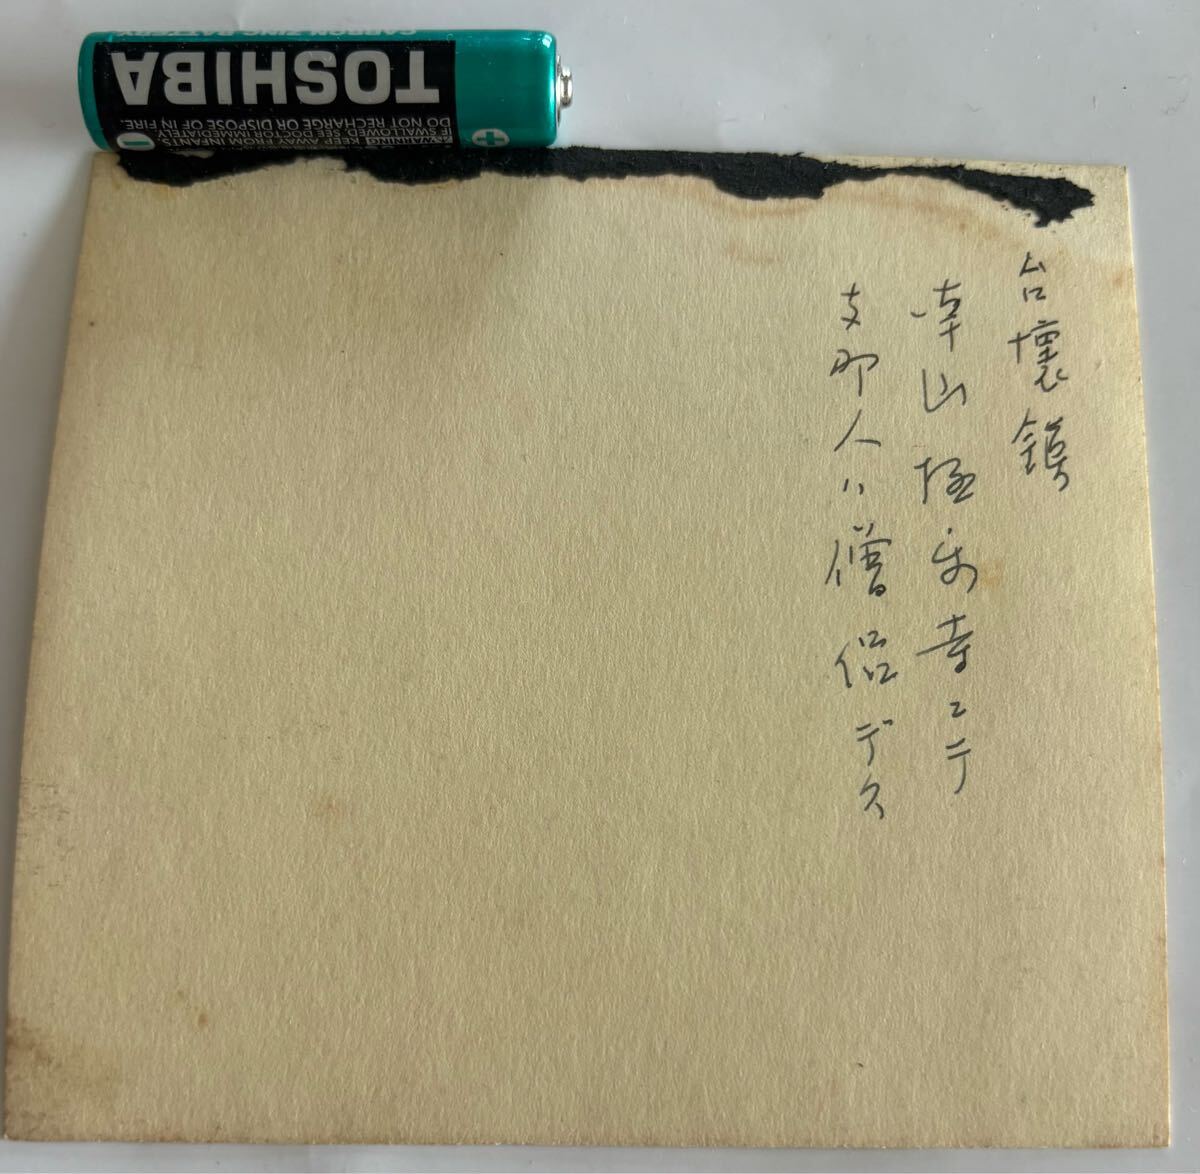 台懐鎮
南山極楽寺ニテ
支那人ハ僧侶デス
CARBON ZINC BATTERY
TOSHIBA
DO NOT RECHARGE OR DISPOSE OF IN FIRE.
IF SWALLOWED, SEE DOCTOR IMMEDIATELY.
WARNING KEEP AWAY FROM INFANTS